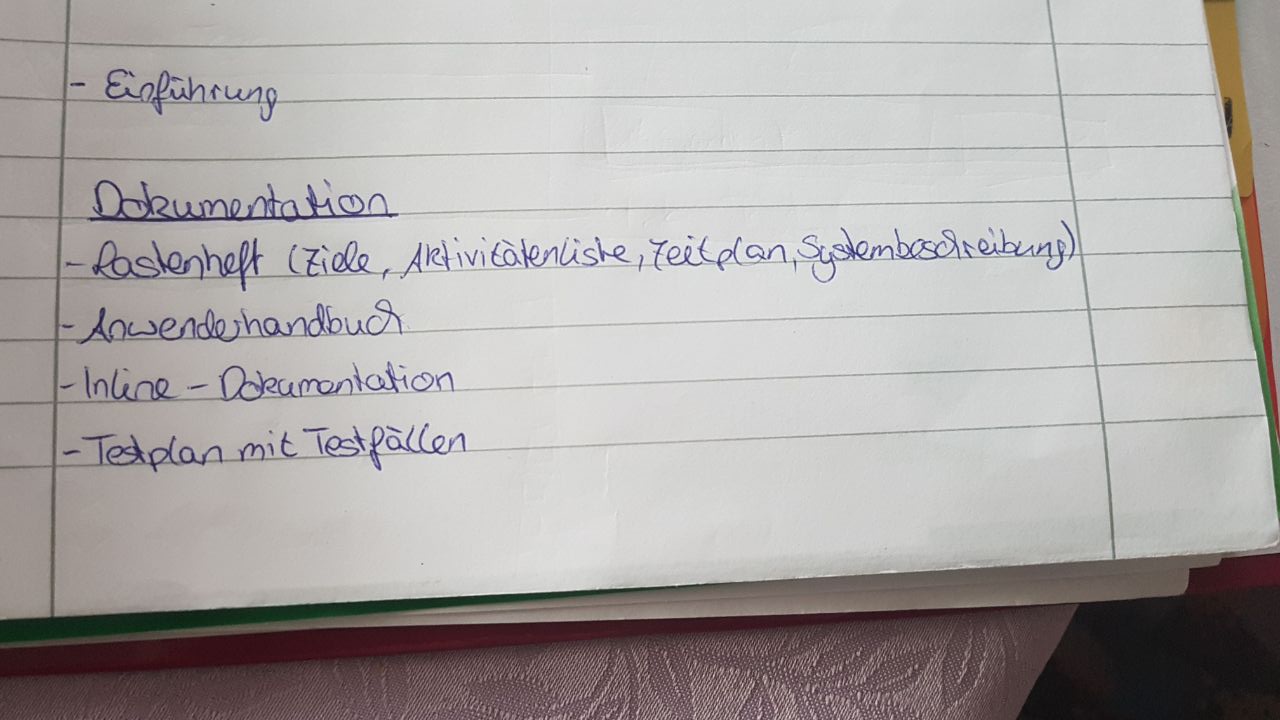 - Einführung
Dokumentation
- Lastenheft (Ziele, Aktivitätenliste, Zeitplan, Systembeschreibung)
- Anwenderhandbuch
- Inline - Dokumentation
- Testplan mit Testfällen